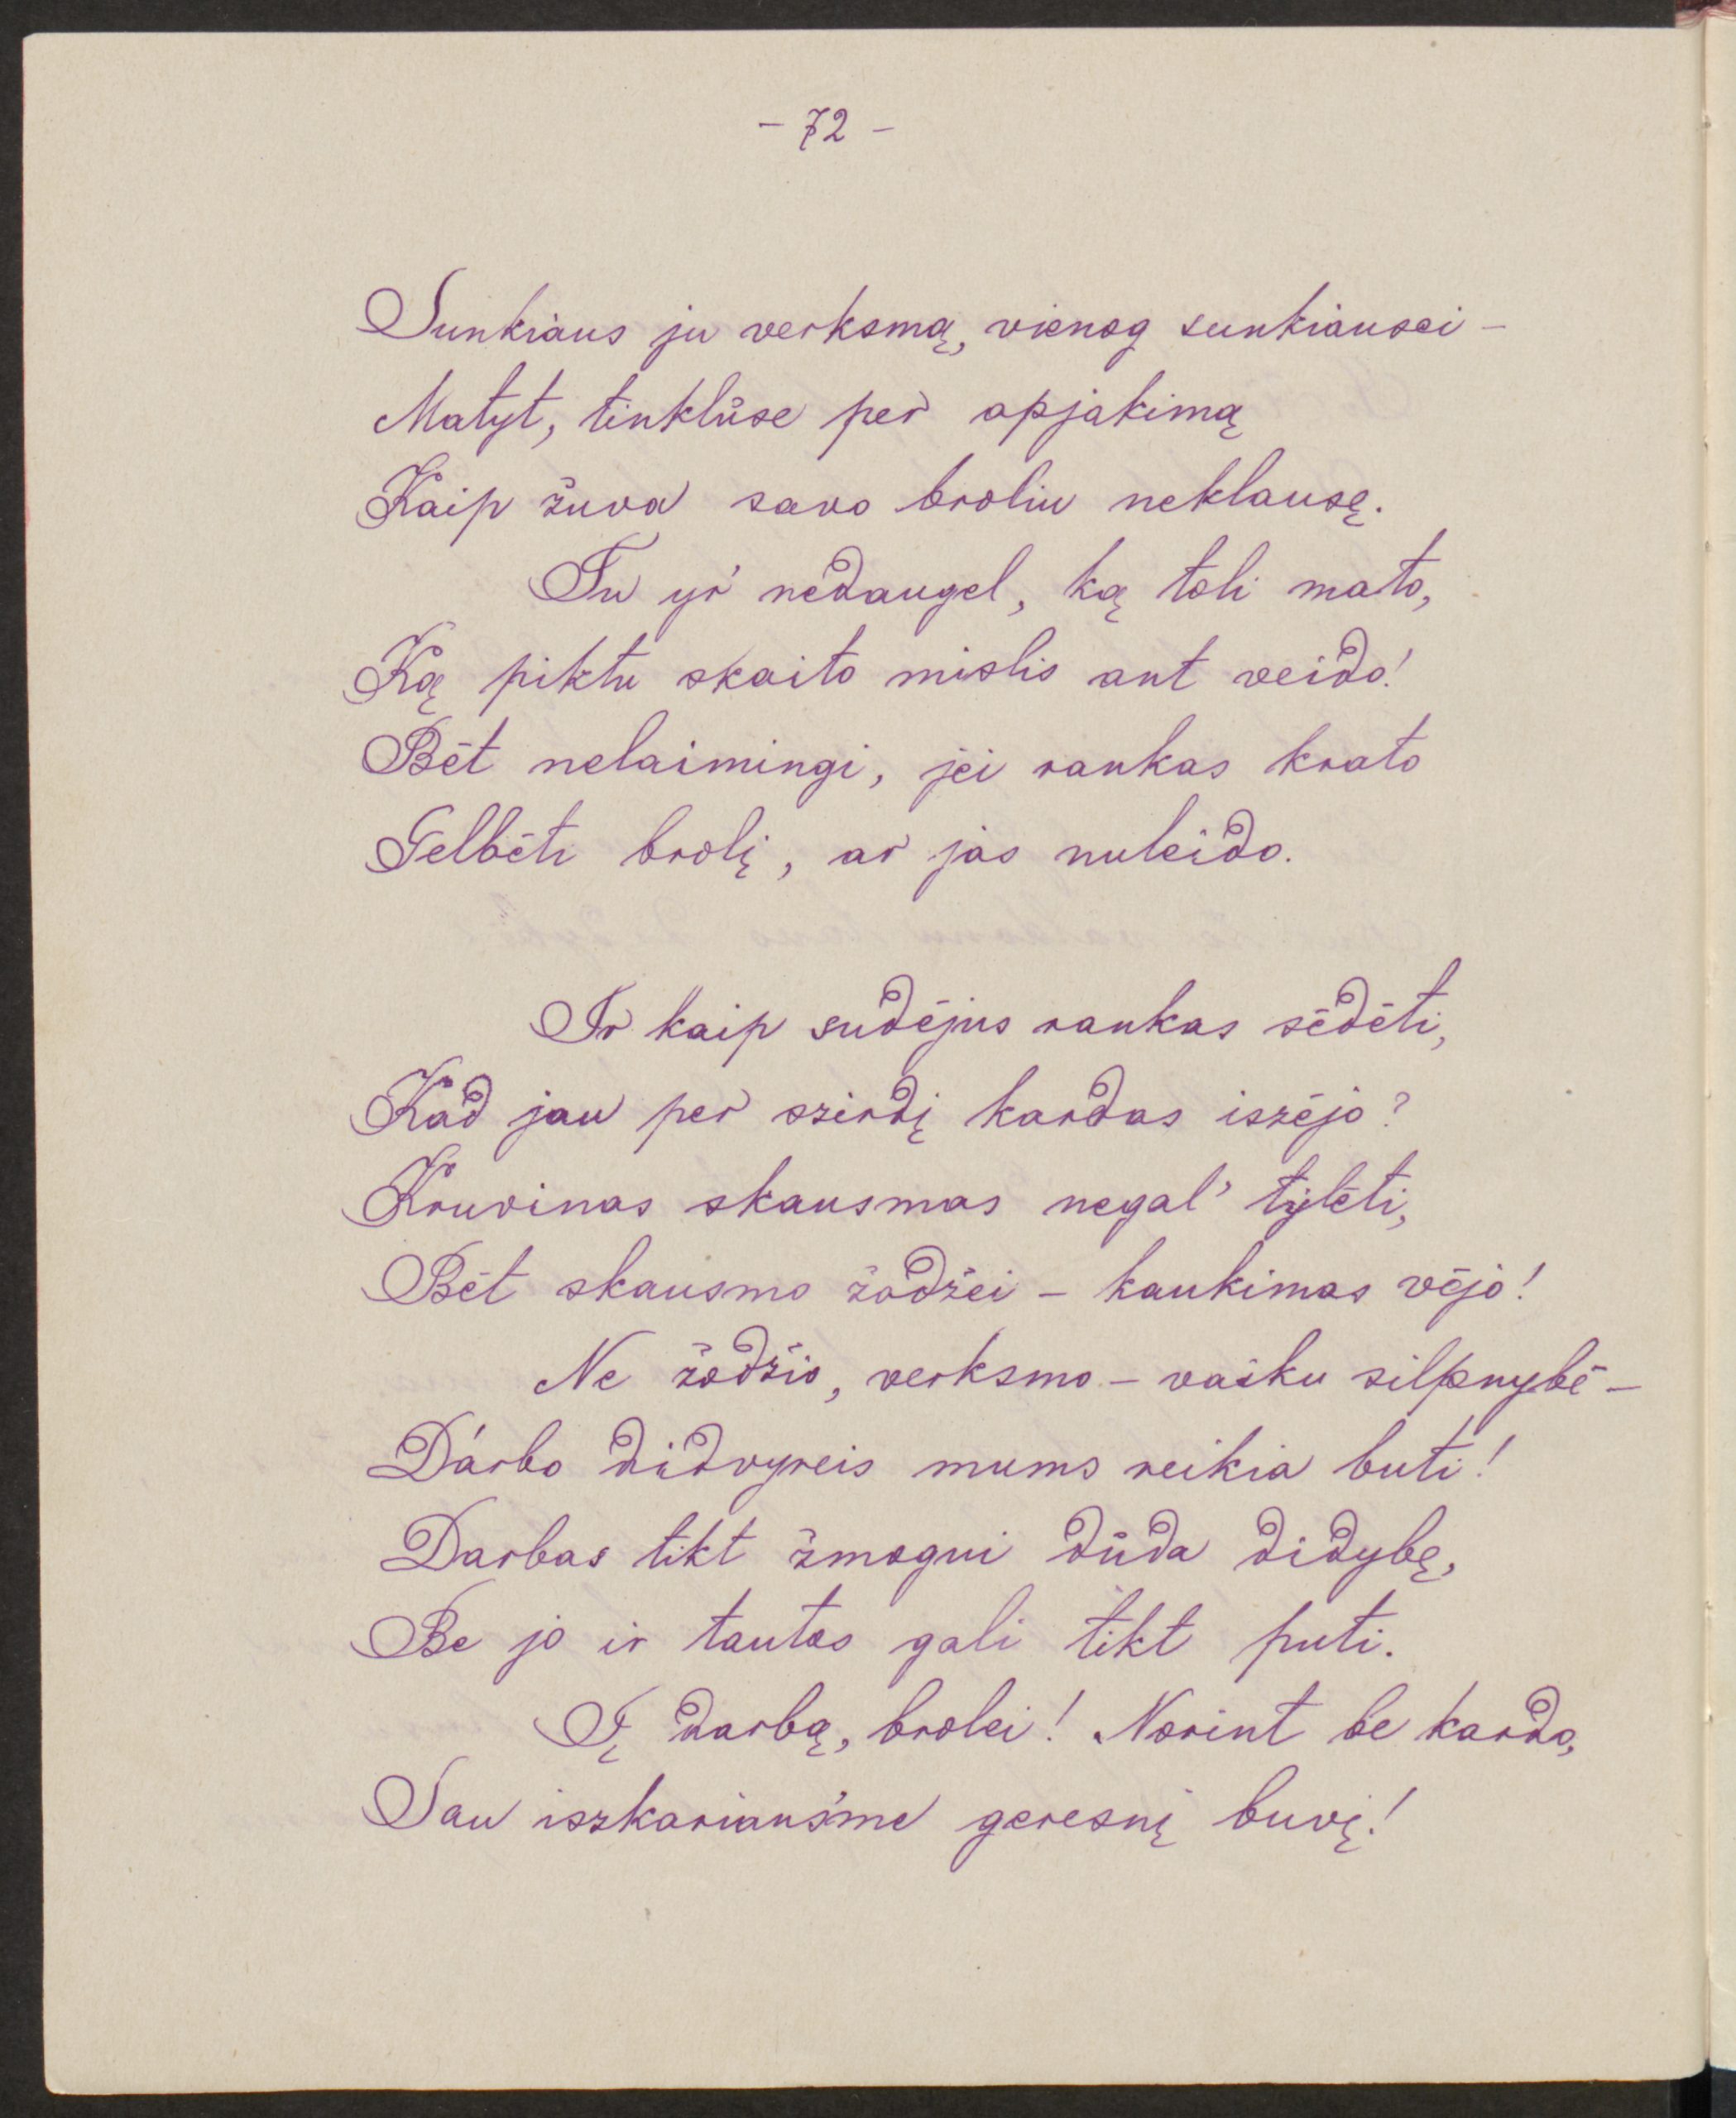 - 72 -
Sunkiaus ju verksmą, vienog sunkiausei -
Matyt, tinklůse per apjakimą
Kaip žuva savo broliu neklausę.
Tu yr' nedaugel, ką toli mato,
Ką piktu skaito mislis ant veido!
Bèt nelaimingi, jei rankas krato
Gelbėti brolį, ar jas nuleido.
Ir kaip sudėjus rankas sėdėti,
Kad jau per szirdį kardas iszėjo?
Kruvinas skausmas negal' tylėti,
Bèt skausmo žodžei - kaukimas vėjo!
Ne žodžio, verksmo - vaiku silpnybė -
Dárbo didvyreis mums reikia buti!
Darbas tikt žmogui důda didybę,
Be jo ir tautos gali tikt puti.
Į darbą, brolei! Norint be kardo,
Sau iszkariaus'me geresnį buvį!